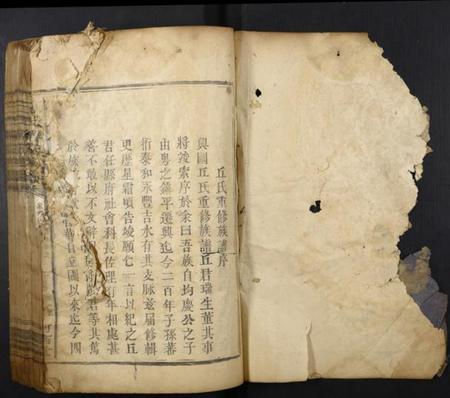 丘氏重修族譜序
興國丘氏重修族譜丘君瑞生董其事
將竣索序於余曰吾族自均慶公之子
由粵之鎮平遷興迄今二百年子孫蕃
衍泰和永豐吉水有其支脈茲屆修輯
更歷星霜頃告竣願乞一言以紀之丘
君任縣府社會科長佐理有年相處甚
不敢以不文辭 君等其萬
於族 自立國以來迄今四